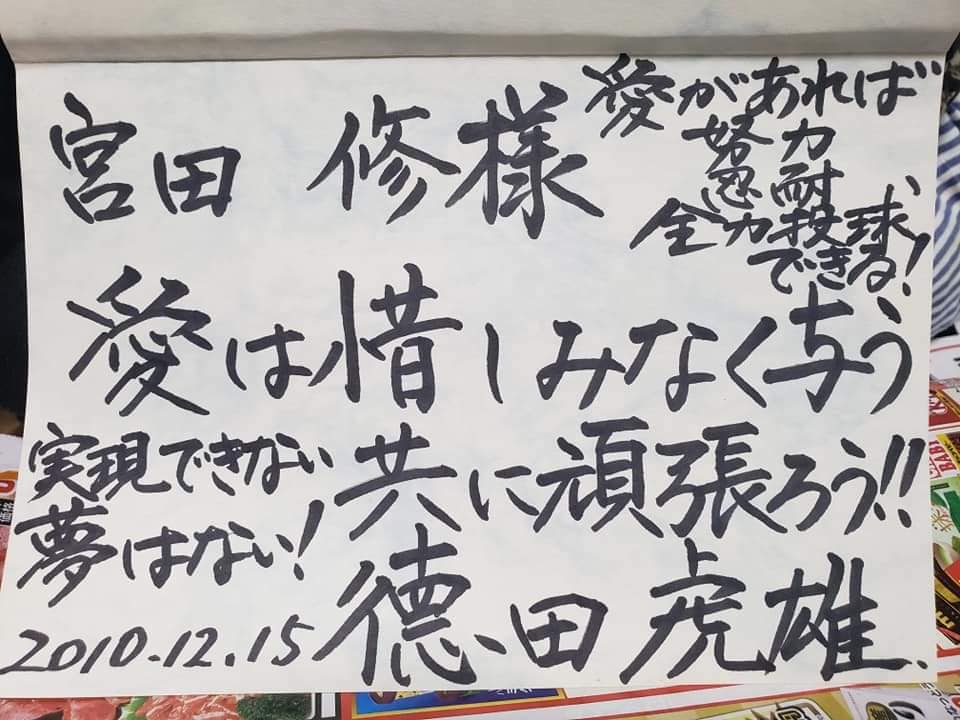 宮田 修様
愛があれば
努力
忍耐
全力投球
できる!
愛は惜しみなく与う
実現できない
夢はない!
共に頑張ろう!!
2010.12.15
徳田虎雄